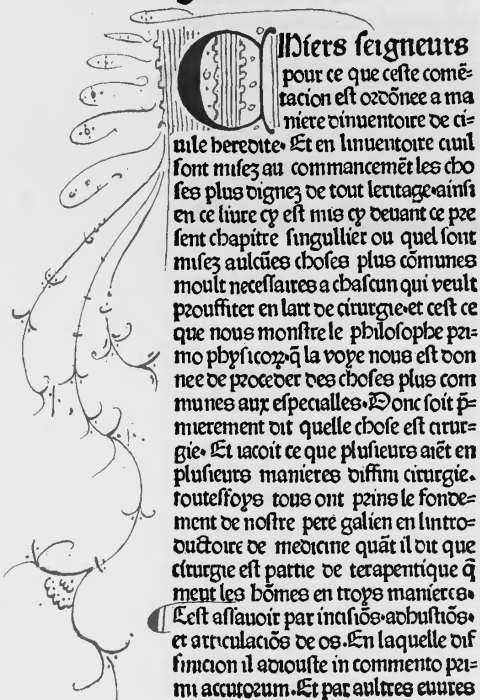 CHiers seigneurs
pour ce que ceste comē=
tacion est ordōnee a ma
niere dinuentoire de ci=
uile heredite. Et en linuentoire ciuil
sont misez au commancemēt les cho
ses plus dignez de tout leritage.ainsi
en ce liure cy est mis cy deuant ce pre
sent chapitre singullier ou quel sont
misez aulcūes choses plus cōmunes
moult necessaires a chascun qui veult
prouffiter en lart de cirurgie.et cest ce
que nous monstre le philosophe pri=
mo phisicoꝝ.q̄ la voye nous est don
nee de proceder des choses plus com
munes aux especialles. Donc soit p̄=
mierement dit quelle chose est cirur=
gie. Et iacoit ce que plusieurs aiēt en
plusieurs manieres diffini cirurgie.
toutesfoys tous ont prins le fonde=
ment de nostre pere galien en lintro=
ductoire de medicine quāt il dit que
cirurgie est partie de terapentique q̄
meut les hōmes en troys manieres.
Cest assauoir par incisiōs.adhustiōs.
et articulaciōs de os. En laquelle dif
finicion il adiouste in commento pri=
mi accutorum. Et par aultres euures